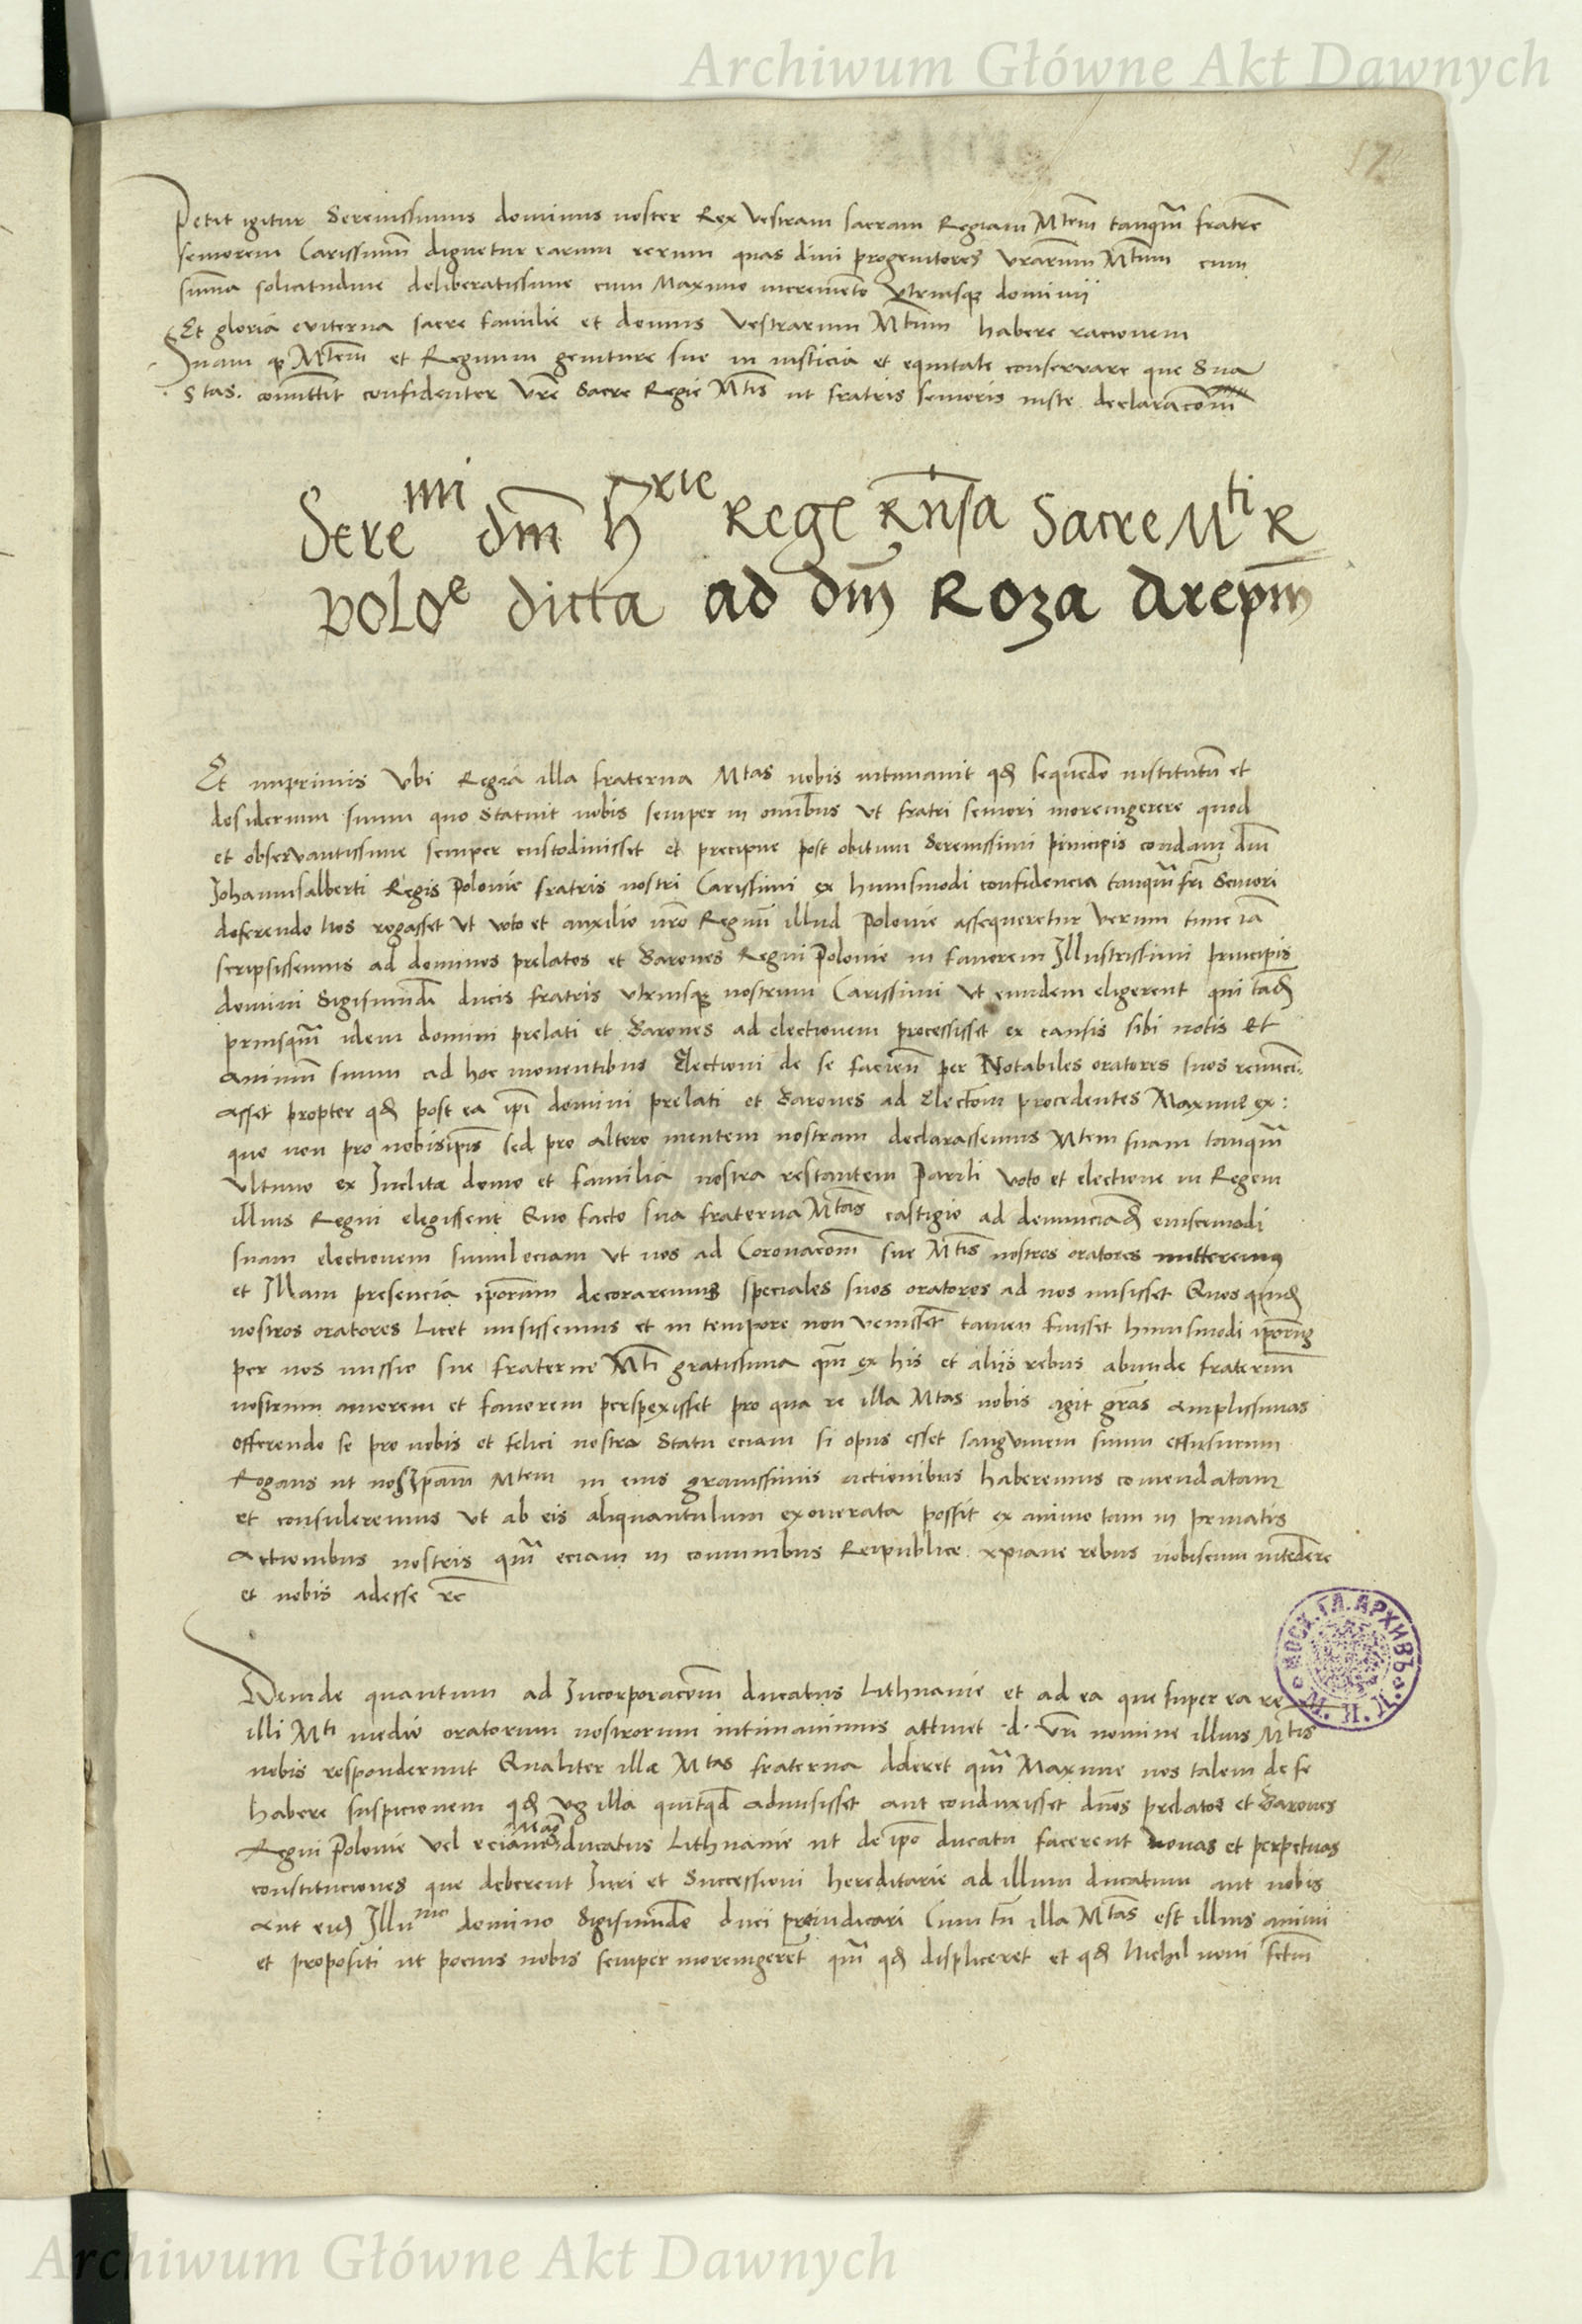 Archiwum Główne Akt Dawnych
17
Petit igitur Serenissimus dominus noster Rex Vestram sacram Regiam Mtem tanqm̃ fratrẽ
seniorem Carissimũ dignetur earum rerum quas divi progenitores vr̃arum Mtum cum
sum̃a solicitudine deliberatissime cum Maximo incremẽto utriusq dominij
Et gloria eviterna sacre familie et domus Vestrarum Mtum habere racionem
Suam q Mtem et Regnum geniture sue in iusticia et equitate conservare que Sua
Stas. com̃ittit confidenter Vr̃e Sacre Regie Mtis ut fratris senioris iuste declaracõni
Seremi dm̃ h̃rie Rege Rñsa Sacre Mti R
poloe dicta ad dm̃ Roza Arepm̃
Et inprimis Vbi Regia illa fraterna Mtas nobis intimavit qd sequẽdo institutũ et
desiderium suum quo statuit nobis semper in omĩbus ut fratri seniori moremgerere quod
et observantissime semper custodivisset et precipue post obitum Serenissimi principis condam dm̃
Johannisalberti Regis Polonie fratris nostri Carissimi ex huiusmodi confidencia tanqm̃ fr̃i Seniori
deferendo Nos rogasset ut voto et auxilio nr̃o Regnũ illud Polonie assequeretur verum tunc iã
scripsissemus ad dominos prelatos et Barones Regni Polonie in favorem Illustrissimi principis
domini Sigismundi ducis fratris utriusq nostrum Carissimi ut eundem eligerent qui tãd
priusqm̃ idem domini prelati et Barones ad electionem processisset ex causis sibi notis Et
animũ suum ad hoc moventibus Electioni de se faciend per Notabiles oratores suos renunci-
asset propter qd post ea ip̃i domini prelati et Barones ad Electõm procedentes Maxime ex:
quo non pro nobisip̃is sed pro altero mentem nostram declarassemus Mtem suam tanqm̃
ultimo ex Inclita domo et familia nostra restantem Parili voto et electione in Regem
illius Regni elegissent Quo facto sua fraterna Mtas e astigio ad denunciãd eiuscemodi
suam electionem simul eciam ut nos ad Coronacõm sue Mtis nostros oratores mitteremus
et Illam presencia ip̃orum decoraremus speciales suos oratores ad nos misisset Quos quid
nostros oratores Licet misissemus et in tempore non venissẽt tamen fuisset huiusmodi ip̃orum
per nos missio sue fraterne Mti gratissima qm̃ ex his et alijs rebus abunde fraternũ
nostrum amorem et favorem perspexisset pro qua re illa Mtas nobis agit gr̃as amplissimas
offerendo se pro nobis et felici nostro Statu eciam si opus esset sangvinem suum effusurum
Rogans ut nos Ip̃am Mtem in eius gravissimis actionibus haberemus comendatam
et consuleremus ut ab eis aliquantulum exonerata possit ex animo tam in privatis
Actionibus nostris qm̃ eciam in comunibus Reipublice xp̃iane rebus nobiscum intẽdere
et nobis adesse rc̃
Deinde quantum ad Incorporacõm ducatus Lithuanie et ad ea que super ea re
illi Mti medio oratorum nostrorum intimavimus attinet .d. vr̃i nomine illius Mtis
nobis responderunt Qualiter illa Mtas fraterna doleret qm̃ Maxime nos talem de se
habere suspicionem qd illa quitqd admisisset aut conduxisset dños prelatos et Barones
Regni Polonie vel eciam ducatus Lithuanie ut de ip̃o ducatu facerent novas et perpetuas
constituciones que deberent Iuri et Successioni hereditarie ad illum ducatum aut nobis
Aut eid Illumo domino Sigismundo duci preiudicari Cum tñ illa Mtas est illius animi
et propositi ut pocius nobis semper moremgeret qm̃ qd displiceret et qd Nichil novi fctm̃
МОСК. ГЛ. АРХИВЪ
Archiwum Główne Akt Dawnych